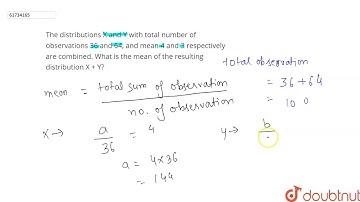 61734165
The distributions X and Y with total number of
observations 36 and 64, and mean 4 and 3 respectively
are combined. What is the mean of the resulting
distribution X + Y?
total observation
= 36 + 64
= 100
mean = total sum of observation
no. of observation
x → a/36 = 4
a = 4×36
= 144
y → b
doubtnut